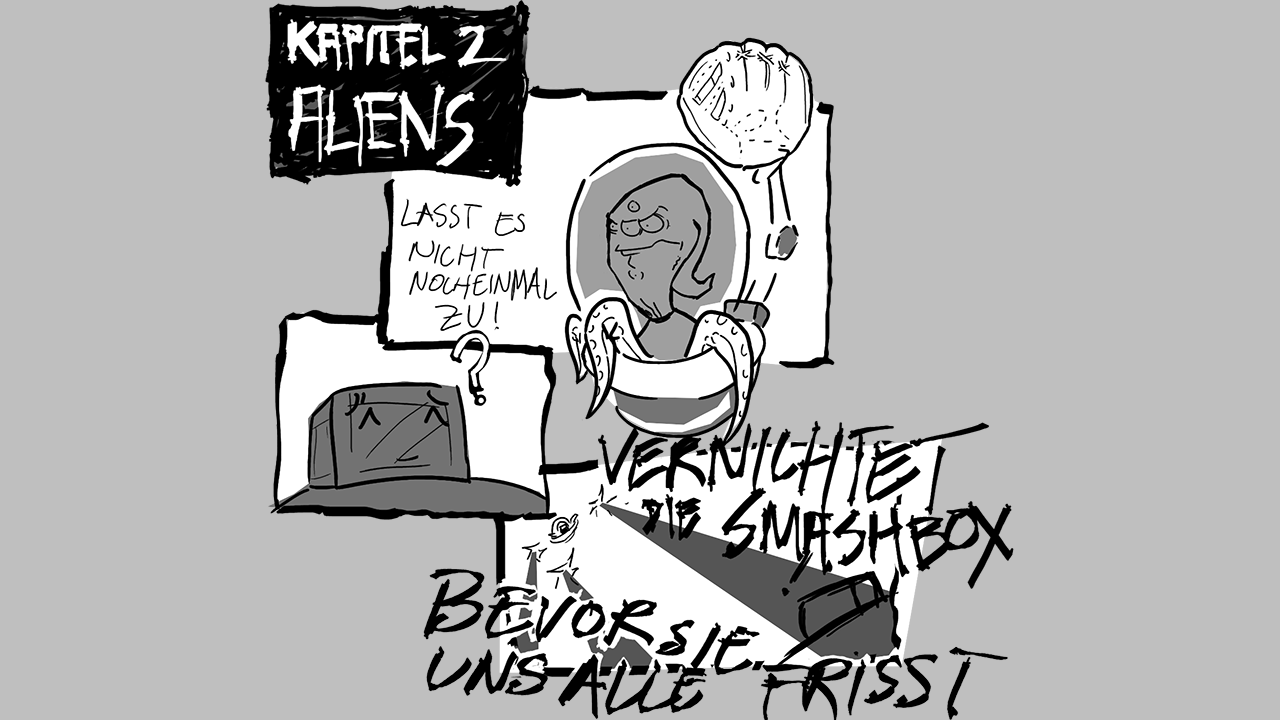 KAPITEL 2
ALIENS
LASST ES
NICHT
NOCHEINMAL
ZU!
?
VERNICHTET
DIE SMASHBOX
BEVOR SIE
UNS ALLE FRISST